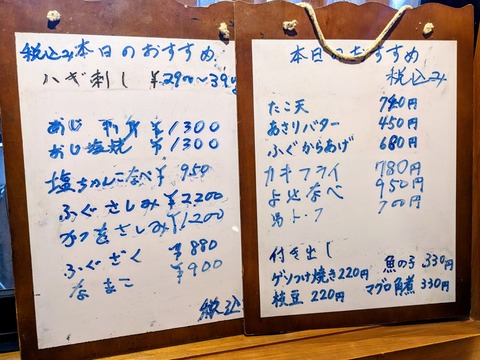 税込み本日のおすすめ
ハギ刺し ¥2900〜
あじ 刺身 ¥1300
あじ塩焼 ¥1300
塩ちゃんこなべ ¥950
ふぐさしみ ¥2200
かつをさしみ ¥1200
ふぐざく ¥880
なまこ ¥900
税込
本日のおすすめ
税込み
たこ天
あさりバター 450円
ふぐからあげ 680円
カキフライ 780円
よせなべ 950円
700円
付き出し
ゲソつけ焼き220円 魚の子 330円
枝豆 220円 マグロ角煮 330円